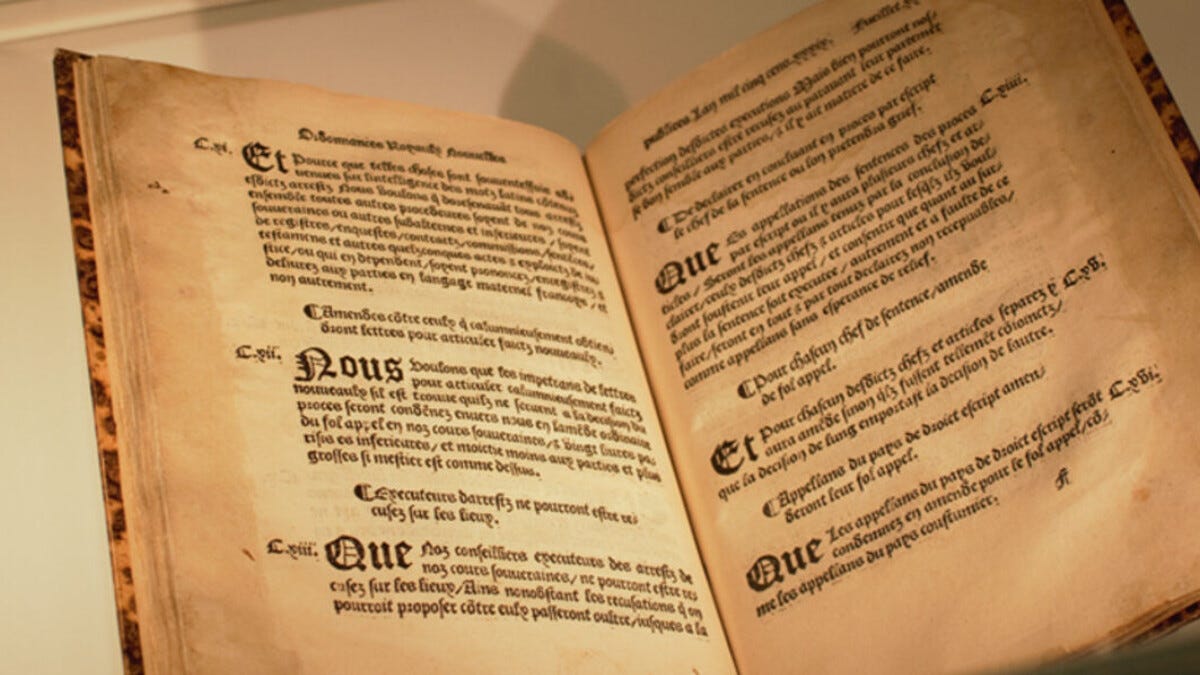 Ordonnances Royaulx nouvelles
C.xi. Et Pource que telles choses sont souventesfois adve
nues sur lintelligence des motz latins côtenuz
esdictz arrestz Nous voulons q̃ doresenavant tous arrestz
ensemble toutes autres procedeures soyent de noz cours
souveraines ou autres subalternes et inferieures / soyent
de registres / enquestes / contractz / commissions / sentêces /
testamens et autres quelzconques actes & exploictz de iu
stice / ou qui en dependent / soyent prononcez / enregistrez &
delivrez aux parties en langage maternel francoys / et
non autrement.
¶Amendes côtre ceulx q̃ calumnieusement obtien
dront lettres pour articuler faictz nouveaulx.
C.xii. Nous Voulons que les impetrans de lettres
pour articuler calumnieusement faictz
nouveaulx sil est trouve quilz ne servent a la decision du
proces seront condênez envers nous en lamêde ordinaire
du fol appel en noz cours souveraines / & vingt livres pa
risis es inferieures / et moictie moins aux parties et plus
grosses si mestier est comme dessus.
¶Executeurs darrestz ne pourront estre re/
cusez sur les lieux.
C.xiii. Que Noz conseilliers executeurs des arrestz de
noz cours souveraines / ne pourront estre re/
cusez sur les lieux / Ains nonobstant les recusations q̃ on
pourroit proposer côtre eulx passeront oultre / iusques a la
publiees Lan mil cinq cens.xxxix. Fueillet
perfection desdictes executions Mais bien pourront nos/
dictz conseilliers estre recusez au paravant leur partemêt
se bon semble aux parties / & il y ait matiere de ce faire.
¶De declairer en concluant en proces par escript
le chef de la sentence ou lon pretendra grief.
Que Les appellations des sentences des proces C.xiiii.
par escript ou il y aura plusieurs chefz et ar/
ticles / Seront les appellans tenuz par la conclusion de/
clairer / ceulx desdictz chefz & articles pour lesqlz ilz voul/
dront soustenir leur appel / et consentir que quant au sur/
plus la sentence soit executee / autrement et a faulte de ce
faire / seront en tout & par tout declairez non recepuables /
comme appellans sans esperance de relief.
¶Pour chascun chef de sentence / amende
de fol appel.
Et Pour chascun desdictz chefz et articles separez y C.xv.
aura amêde sinon qlz fussent tellemêt côioinctz /
que la decision de lung emportast la decision de lautre.
¶Appellans du pays de droict escript amen/
deront leur fol appel.
Que Les appellans du pays de droict escript serôt C.xvi.
condennez en amende pour le fol appel / cô/
me les appellans du pays coustumier.